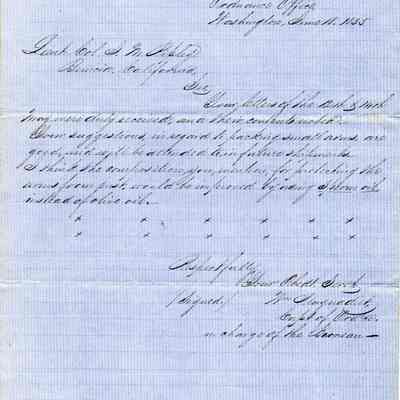 Ordnance Office
Washington, June 11. 1855
Lieut Col
Benicia, California,
Sir
Your letters of the &
May were duly received, and their contents noted.
Your suggestions, in regard to packing small arms, are
good, and will be attended to in future shipments.
I think the composition you mention, for protecting the
arms from rust, would be improved by using Sperm oil
instead of olive oil.
x x x x x
x x x x x
Respectfully
Your Obedt Servt
(Signed) Wm Maynadier
Capt of Ord
in charge of the Bureau